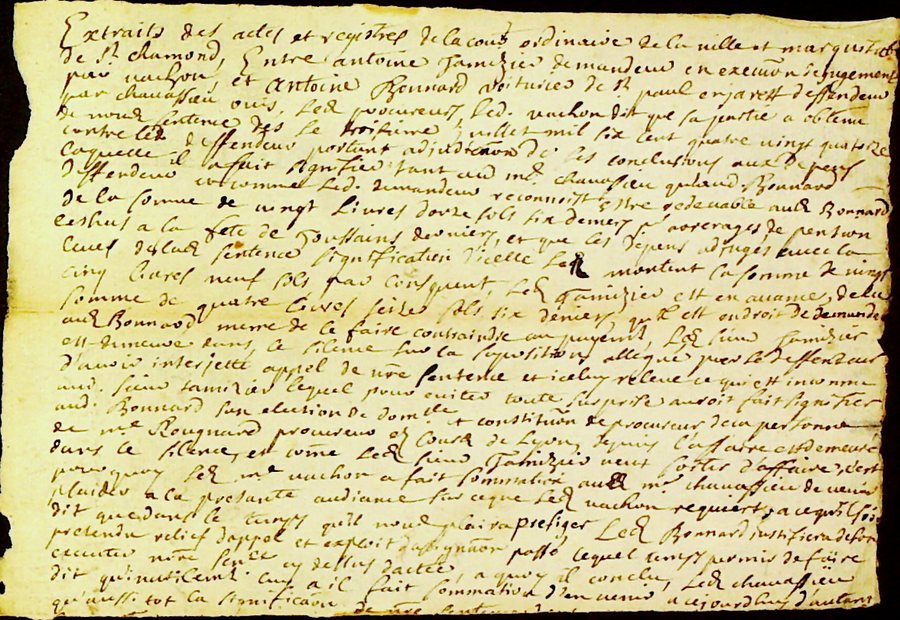 Extraits des actes et registres de la cour ordinaire de la ville et marquisat
de St chamond, Entre antoine Tamizier demandeur en execution de jugement
par vachon, et Antoine Bonnard voiturier de St paul en jarest deffendeur
par chavassieu ouis, Led procureurs, Led. vachon dit que sa partie a obtenu
de nous sentence des le troisieme juillet mil six cent quatre vingt quatorze
contre led. deffendeur portant adjudication de ses conclusions aux depens
laquelle il a fait signifier tant au me. chavassieu qu'aud. Bonnard
deffendeur et comme Led. demandeur reconnoist estre redevable aud Bonnard
de la somme de vingt Livres donze sols six deniers arrerages de pension
eschus a la fete de Toussains derniers, et que les depens adjuges avec la
lad sentence signification d'icelle montent la somme de vingt
cinq livres neuf sols par consequent, Led Tamizier est en avance, de la
somme de quatre livres seize sols six deniers qu'il est en droit de demander
aud Bonnard meme de le faire contraindre au payemt, Led sieur Tamizier
est demeure dans le silence sur la supposition allegue par le deffendeur
d'avoir interjette appel de nre sentence et icelluy releve ce qui est inconnu
aud. sieur tamizier lequel pour eviter toute surprise auroit fait signifier
aud. Bonnard son election de domlle et constitution de procureur de la personne
de me Rougnard procureur es Cours de Lyon, depuis l'affaire est demeuré
dans le silence, et come Led sieur Tamizier veut sortir d'affaire, c'est
pourquoy Led me vachon a fait sommation aud me chavassieu de venir
plaider a la presante audiance sur ce que Led vachon requiert, a ce qu'il soit
dit que dans le temps qu'il nous plaira prefiger Led Bonnard justifiera de son
pretendu relief d'appel et exploit d'assignation passé lequel temps permis de faire
executer nre sence cy dessus dactée, a quoy il conclu, Led chavassieu
dit qu'inutilemt luy a il fait sommation d'en venir a cejourdhuy d'autant
qu'aussi tot la signification de nre sentence